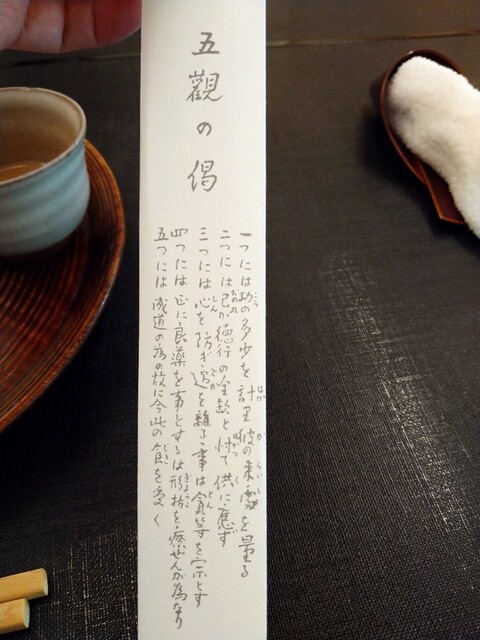 五觀の偈
一つには功の多少を計里彼の来處を量る
二つには己が徳行の全缺と忖て供に應ず
三つには心を防ぎ過を離るゝ事は貪等を宗とす
四つには正に良薬を事とするは形枯を療ぜんが為なり
五つには成道の為の故に今此の食を受く